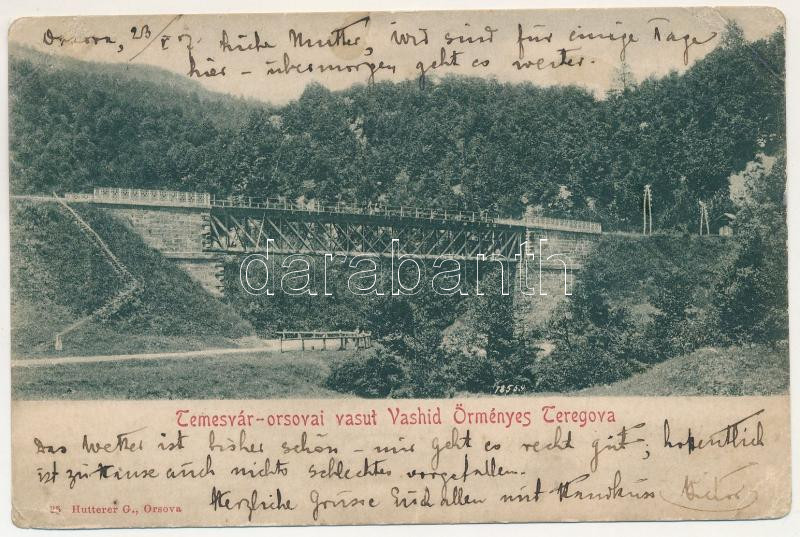 Orsova, 23/X 07. Liebe Mutter, wir sind für einige Tage
hier - übermorgen geht es weiter.
darabanth.com
18564
Temesvár-orsovai vasut Vashid Örményes Teregova
Das Wetter ist bisher schön - mir geht es recht gut; hoffentlich
ist zu Hause auch nichts schlechtes vorgefallen.
Herzliche Grüsse Euch allen mit Handkuss Victor
25 Hutterer G., Orsova